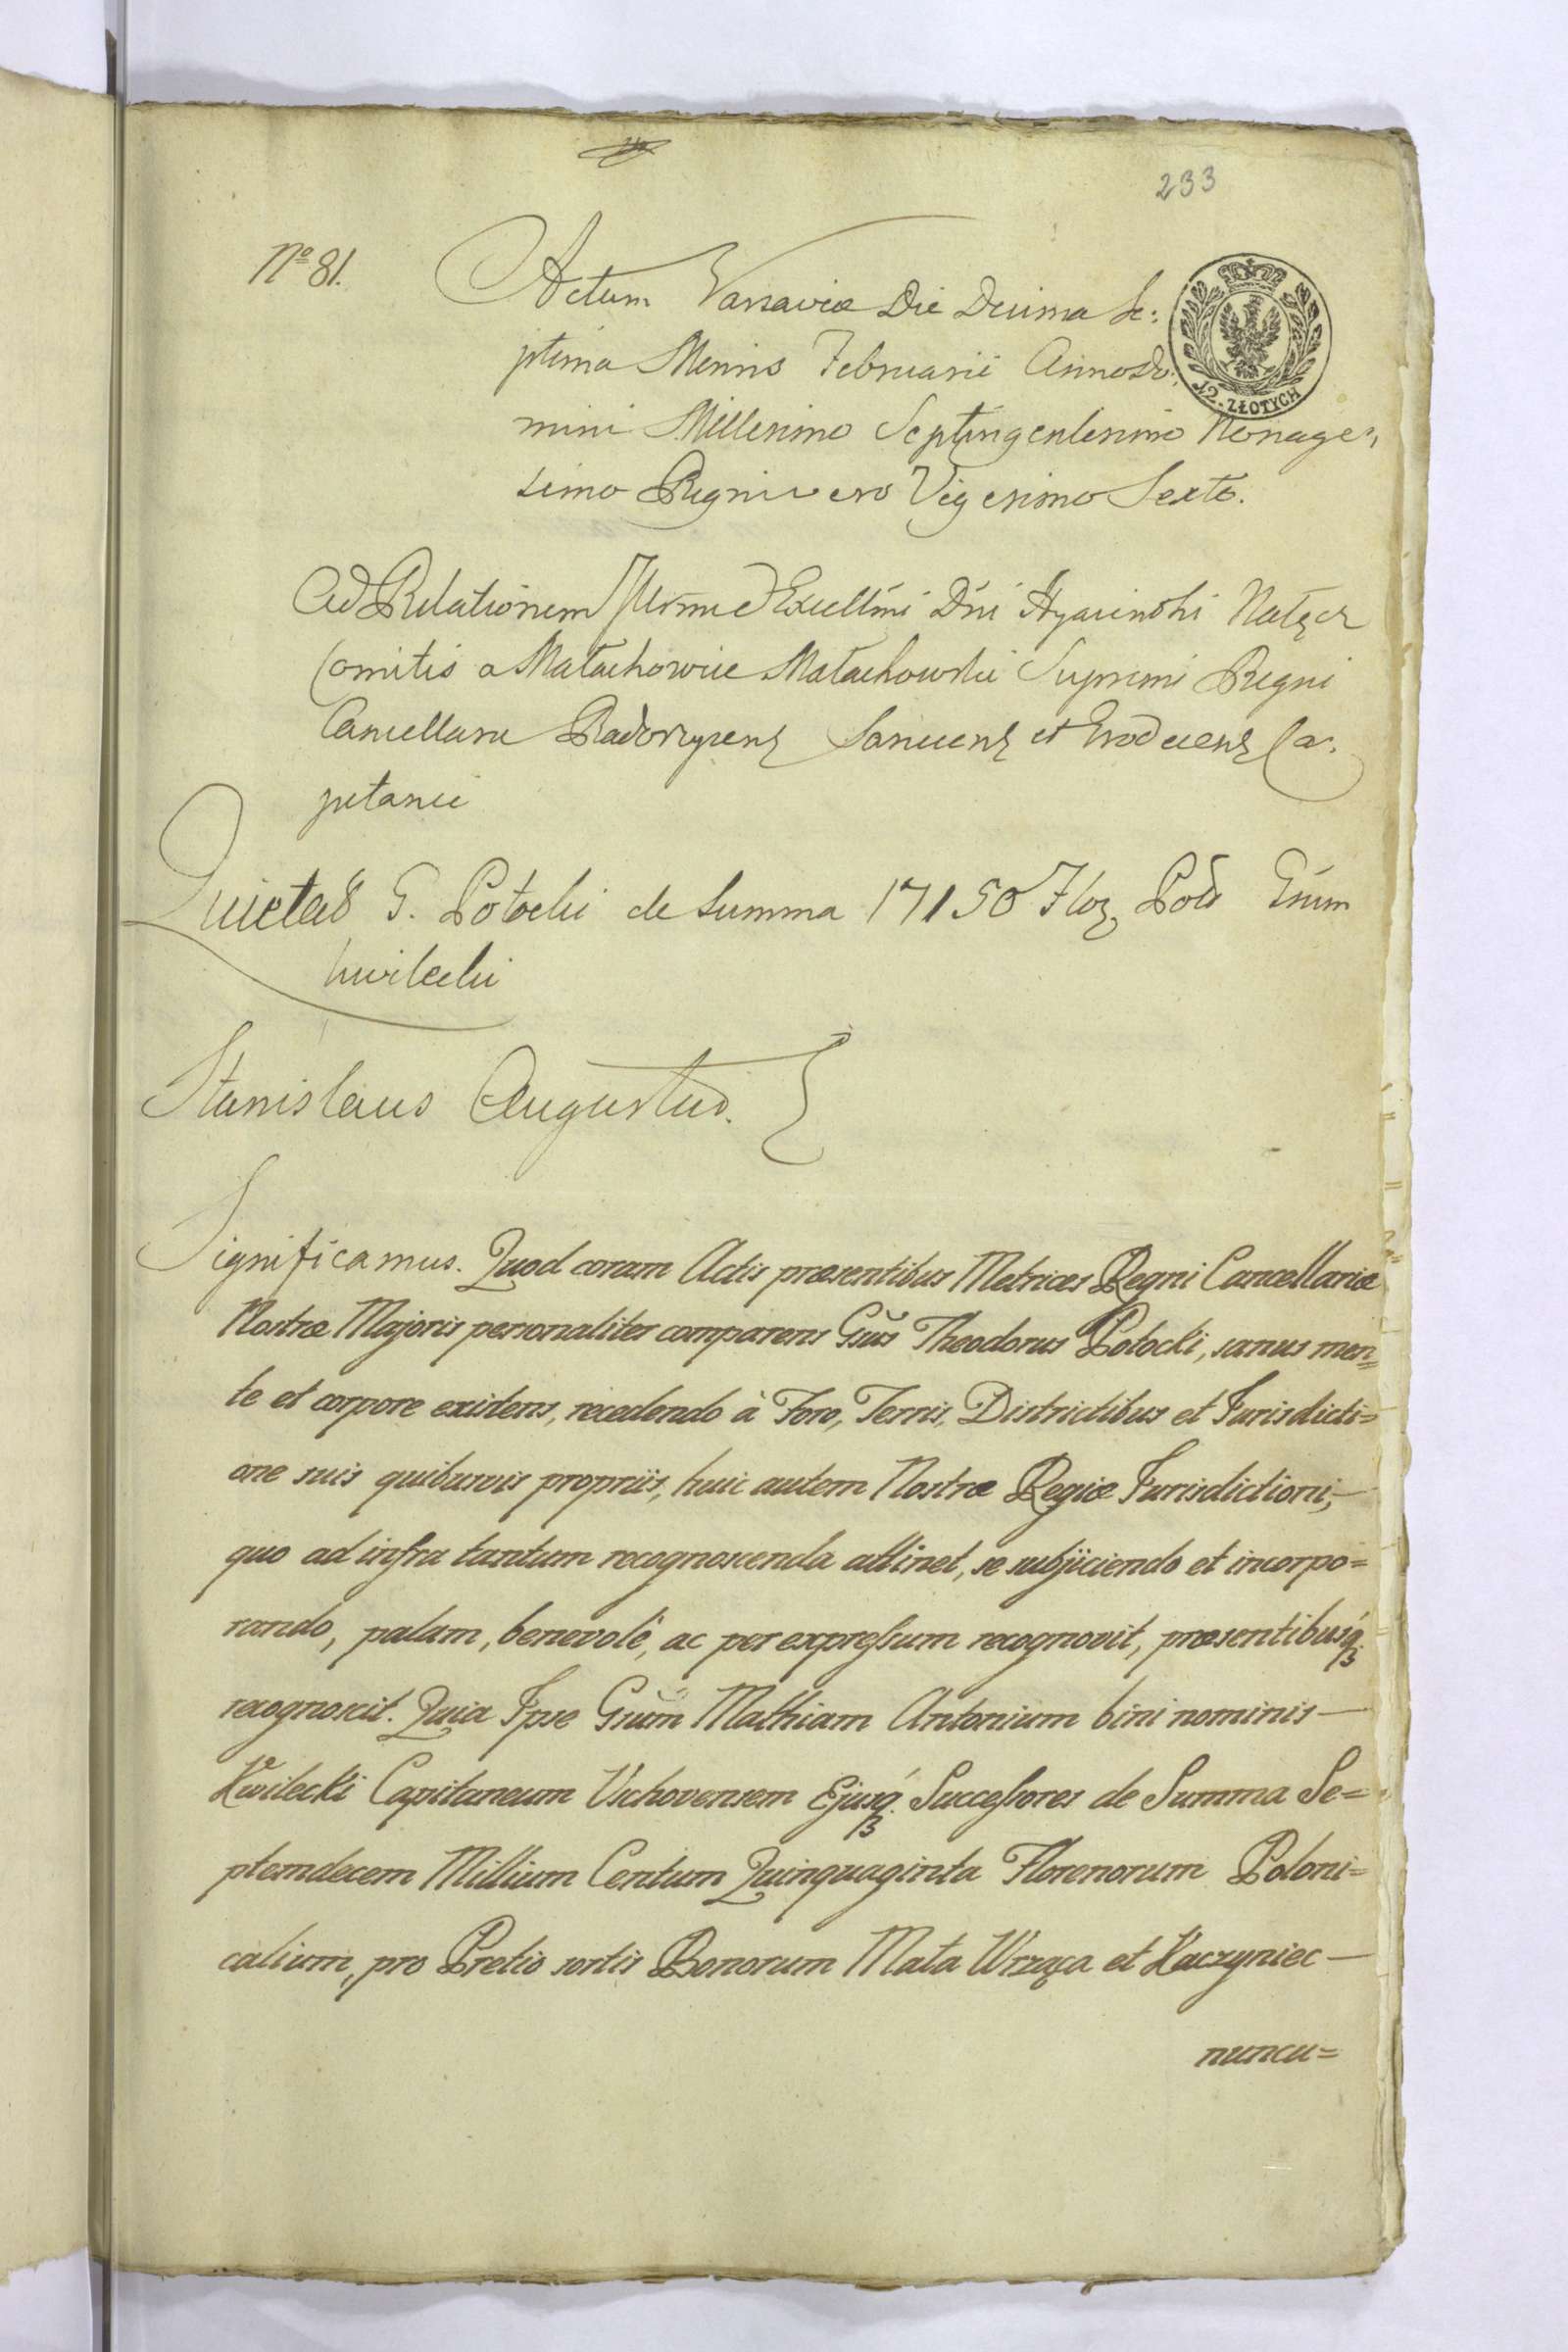 233
Nº 81.
Actum Varsaviæ Die Decima Se:
ptima Mensis Februarii Anno Do:
mini Millesimo Septingentesimo Nonage:
simo Regni vero Vigesimo Sexto.
12. ZŁOTYCH
Ad Relationem Excellmi Dni Hyacinthi Nałęcz
Comitis a Małachowice Małachowski Supremi Regni
Cancellarii et Ca:
pitanei
Quietat G. Potocki de Summa 17150 Flor Pol Gsum
Kwilecki
Stanislaus Augustus.
Significamus. Quod coram Actis præsentibus Metrices Regni Cancellariæ
Nostræ Majoris personaliter comparens Gsus Theodorus Potocki, sanus men=
te et corpore existens, recedendo à Foro, Terris, Districtibus et Jurisdicti=
one suis quibusvis propriis, huic autem Nostræ Regiæ Jurisdictioni,—
quo ad infra tantum recognoscenda attinet, se subjiciendo et incorpo=
rando, palam, benevolè, ac per expressum recognovit, præsentibusq́
recognoscit. Quia Ipse Gsum Mathiam Antonium bini nominis—
Kwilecki Capitaneum Vschovensem Ejusq́ Successores de Summa Se=
ptemdecem Millium Centum Quinquaginta Florenorum Poloni=
calium, pro Pretio sortis Bonorum Mała Wrząca et Kaczyniec—
nuncu=